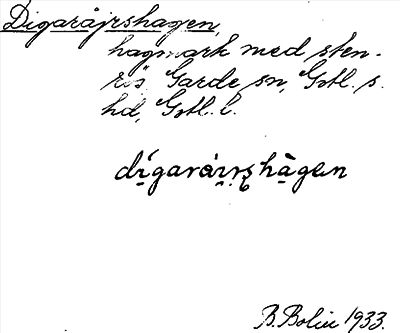 Digaråjrshagen,
hagmark med sten-
rös, Garde sn, Gotl. s.
hd, Gotl. l.
dígaråi̯rshàgen
B. Bolin 1933.